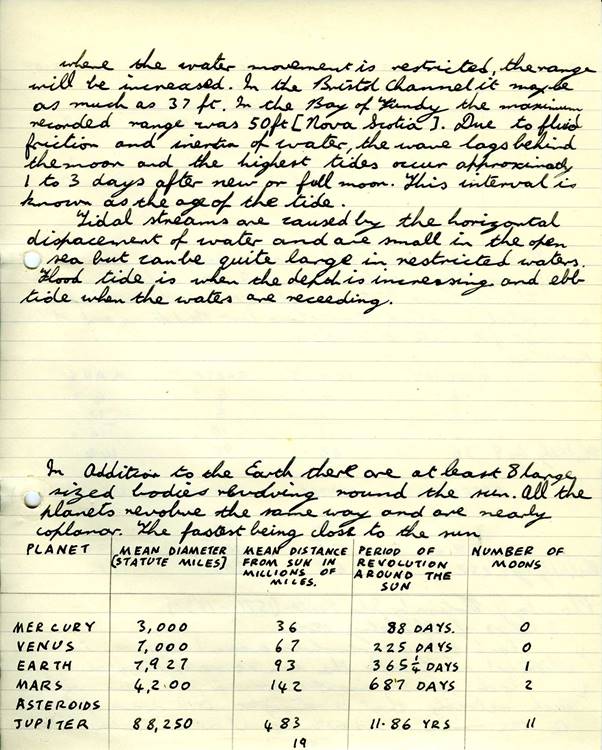 where the water movement is restricted, the range
will be increased. In the Bristol Channel it may be
as much as 37 ft. In the Bay of Fundy the maximum
recorded range was 50ft [Nova Scotia]. Due to fluid
friction and inertia of water, the wave lags behind
the moon and the highest tides occur approximady
1 to 3 days after new or full moon. This interval is
known as the age of the tide.
Tidal streams are caused by the horizontal
dispacement of water and are small in the open
sea but can be quite large in restricted waters.
Flood tide is when the depth is increasing and ebb
tide when the waters are receeding.
In Addition to the Earth there are at least 8 large
sized bodies revolving round the sun. All the
planets revolve the same way and are nearly
coplanar. The fastest being close to the sun
PLANET MEAN DIAMETER MEAN DISTANCE PERIOD OF NUMBER OF
[STATUTE MILES] FROM SUN IN REVOLUTION MOONS
MILLIONS OF AROUND THE
MILES. SUN
MERCURY 3,000 36 88 DAYS. 0
VENUS 7,000 67 225 DAYS 0
EARTH 7,927 93 365¼ DAYS 1
MARS 4,200 142 687 DAYS 2
ASTEROIDS
JUPITER 88,250 483 11.86 YRS 11
19